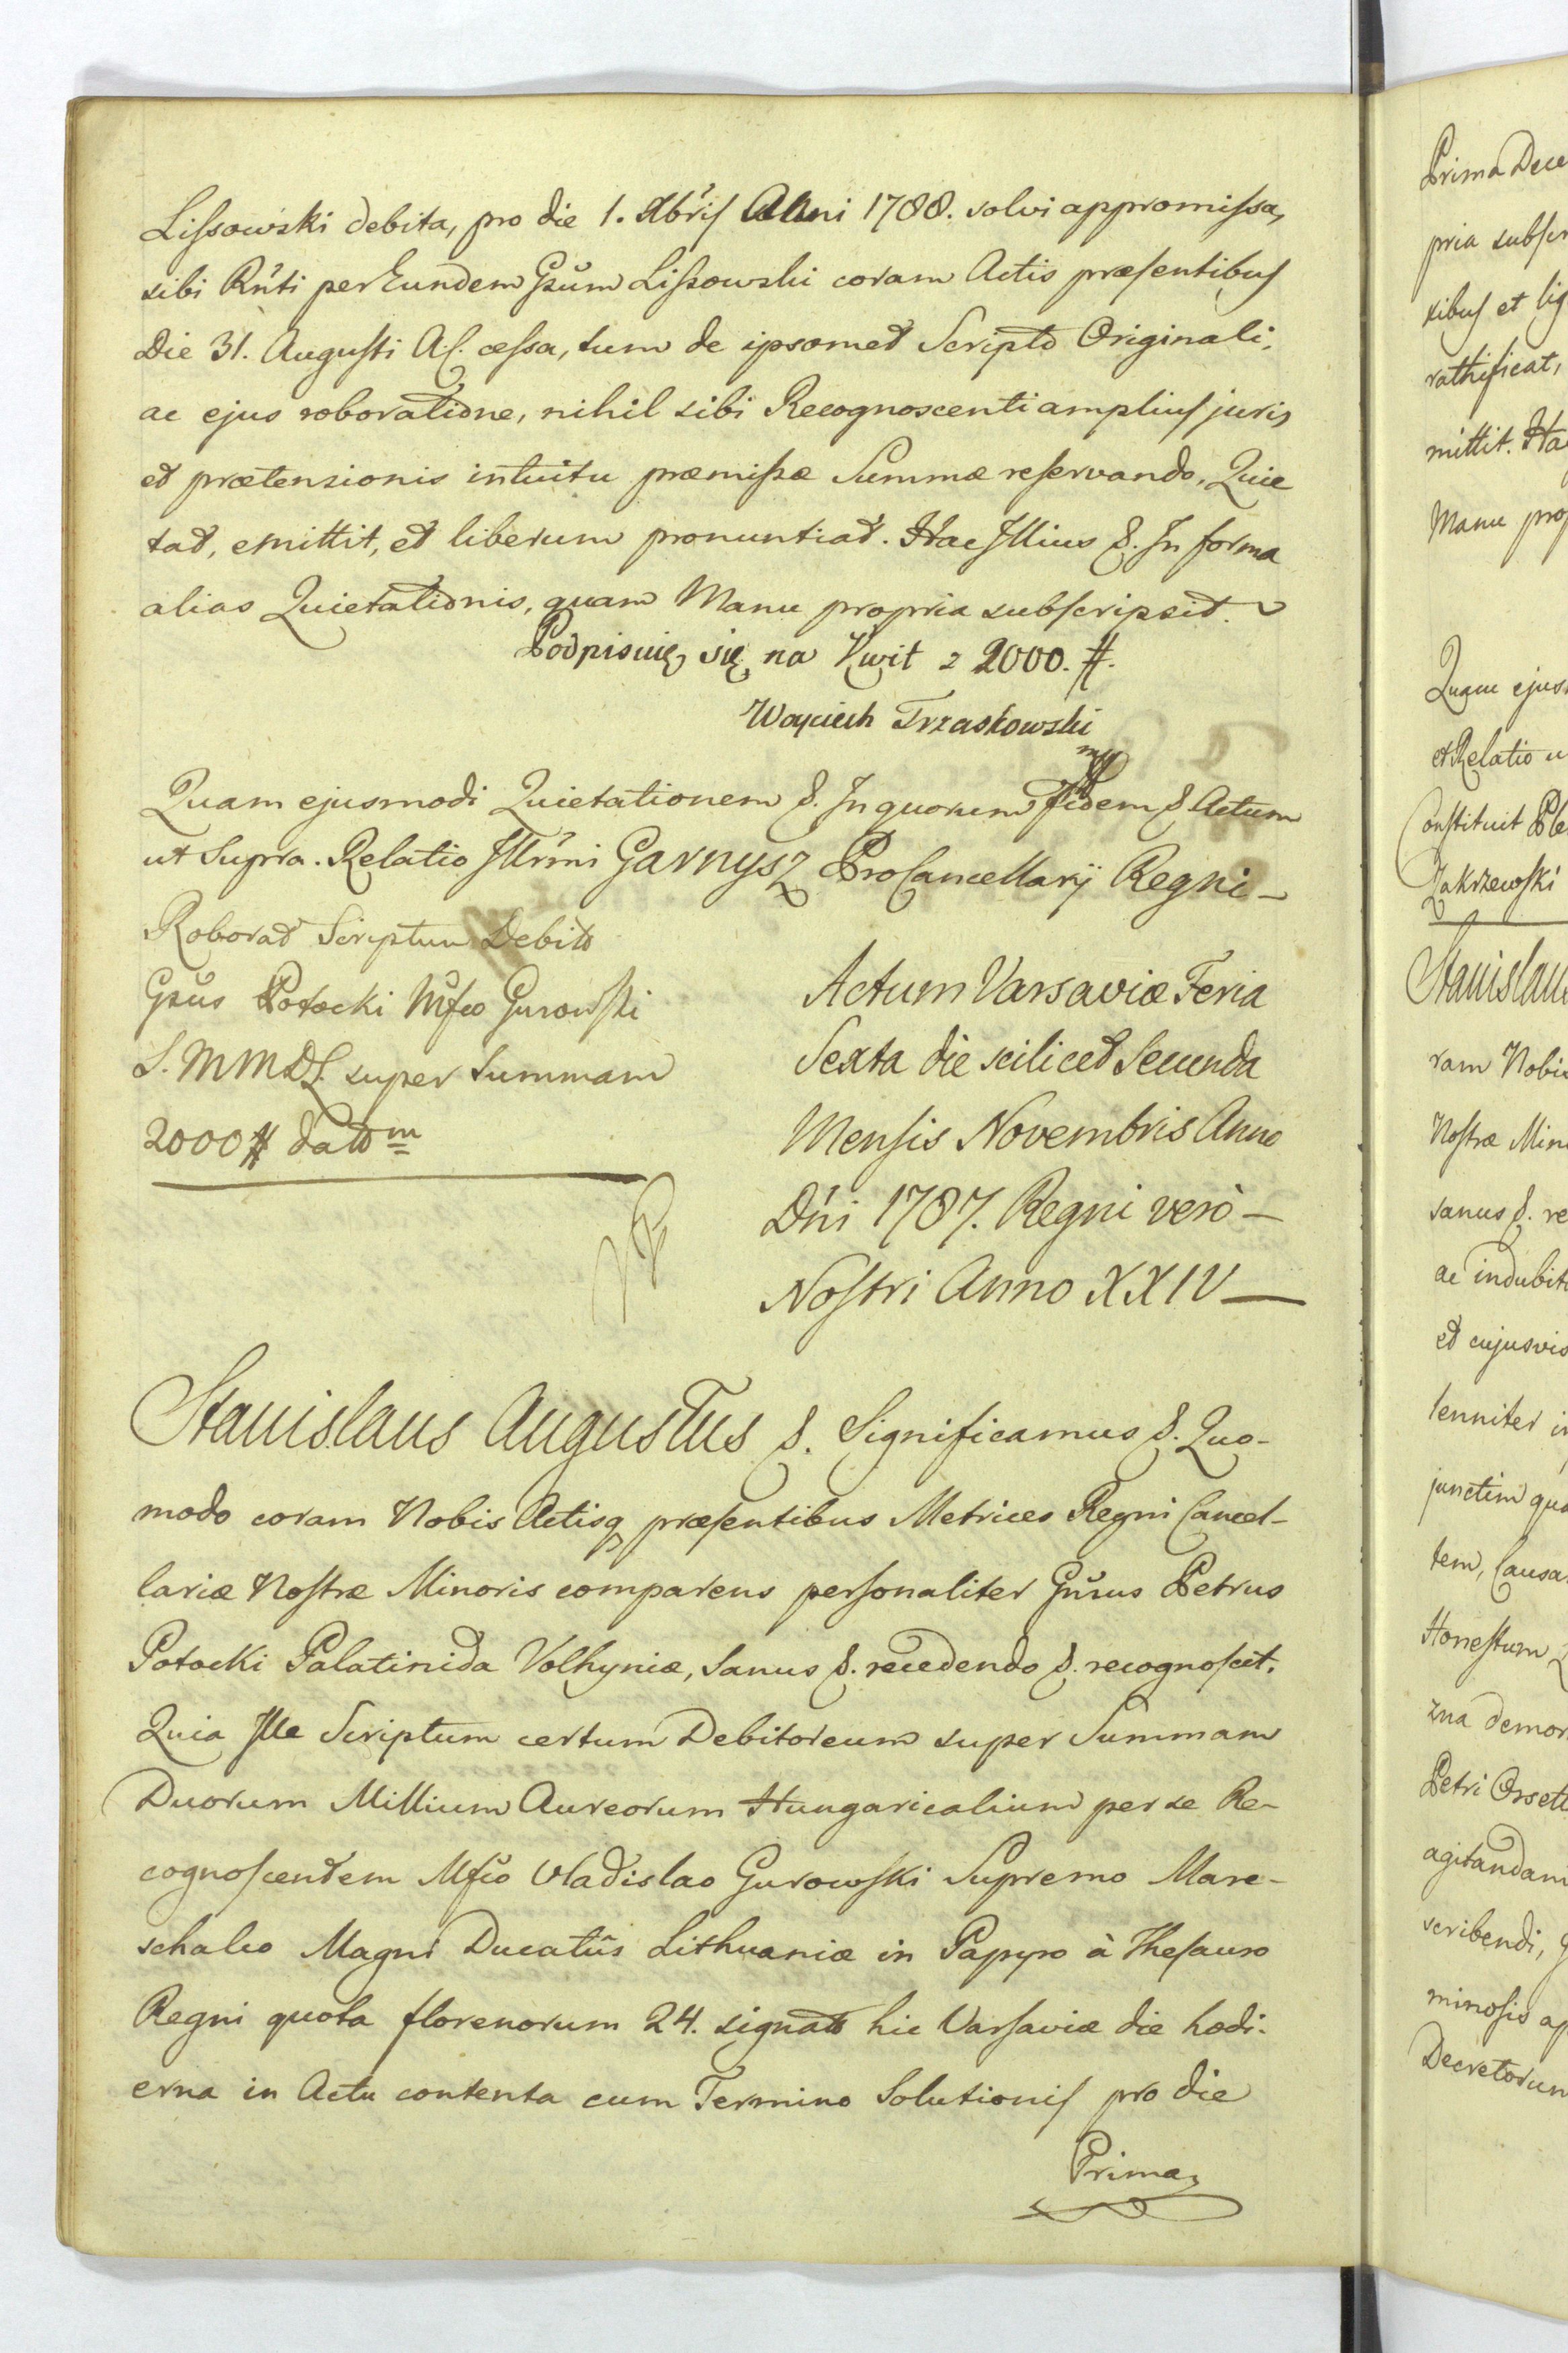 Lissowski debita, pro die 1. Xbris Anni 1788. solvi appromissa,
sibi Rnti per Eundem Gsum Lissowski coram Actis præsentibus
Die 31. Augusti A. C. cessa, tum de ipsomet Scripto Originali,
ac ejus roboratione, nihil sibi Recognoscenti amplius juris
et prætensionis intuitu præmissæ Summæ reservando, Quie
tat, emittit, et liberum pronuntiat. Hac Illius &. In forma
alias Quietationis, quam Manu propria subscripsit.
Podpisuię się na Kwit z 2000. #.
Woyciech Trzaskowski
mp
Quam ejusmodi Quietationem &. In quorum Fidem & Actum
ut Supra. Relatio Illrmi Garnysz ProCancellarij Regni –
Roborat Scriptum Debito
Gsus Potocki Mfco Gurowski
S. M M D L. super Summam
2000 # datom
Actum Varsaviæ Feria
Sexta die scilicet Secunda
Mensis Novembris Anno
Dni 1787. Regni verò –
Nostri Anno XXIV –
Stanislaus Augustus &. Significamus &. Quo-
modo coram Nobis Actisq præsentibus Metrices Regni Cancel-
lariæ Nostræ Minoris comparens personaliter Gnsus Petrus
Potocki Palatinida Volhyniæ, sanus &. recedendo &. recognoscit.
Quia Ille Scriptum certum Debitoreum super Summam
Duorum Millium Aureorum Hungaricalium per se Re-
cognoscentem Mfco Vladislao Gurowski Supremo Mare-
schalco Magni Ducatûs Lithuaniæ in Papyro à Thesauro
Regni quota florenorum 24. signato hic Varsaviæ die hodi-
erna in Actu contenta cum Termino Solutionis pro die
Prima
Prima Dece
pria subscr
sibus et lig
rathificat,
mittit. Ha
Manu prop
Quam ejus
et Relatio u
Constituit Ple
Zakrzewski
Stanislaus
ram Nobis
Nostræ Min
sanus &. re
ac indubit
et cujusvis
lenniter in
junctim qua
tem, Causa
Honestum
zna demor
Petri Orsett
agitandam
scribendi,
minosis ap
Decretorum